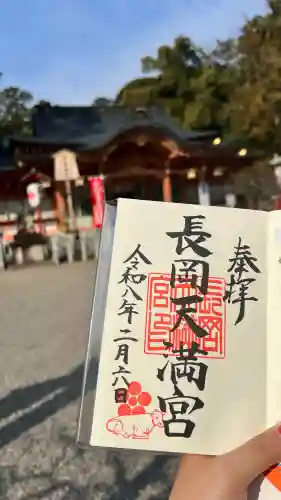 奉拝
長岡天満宮
長岡天満宮印
令和八年二月六日